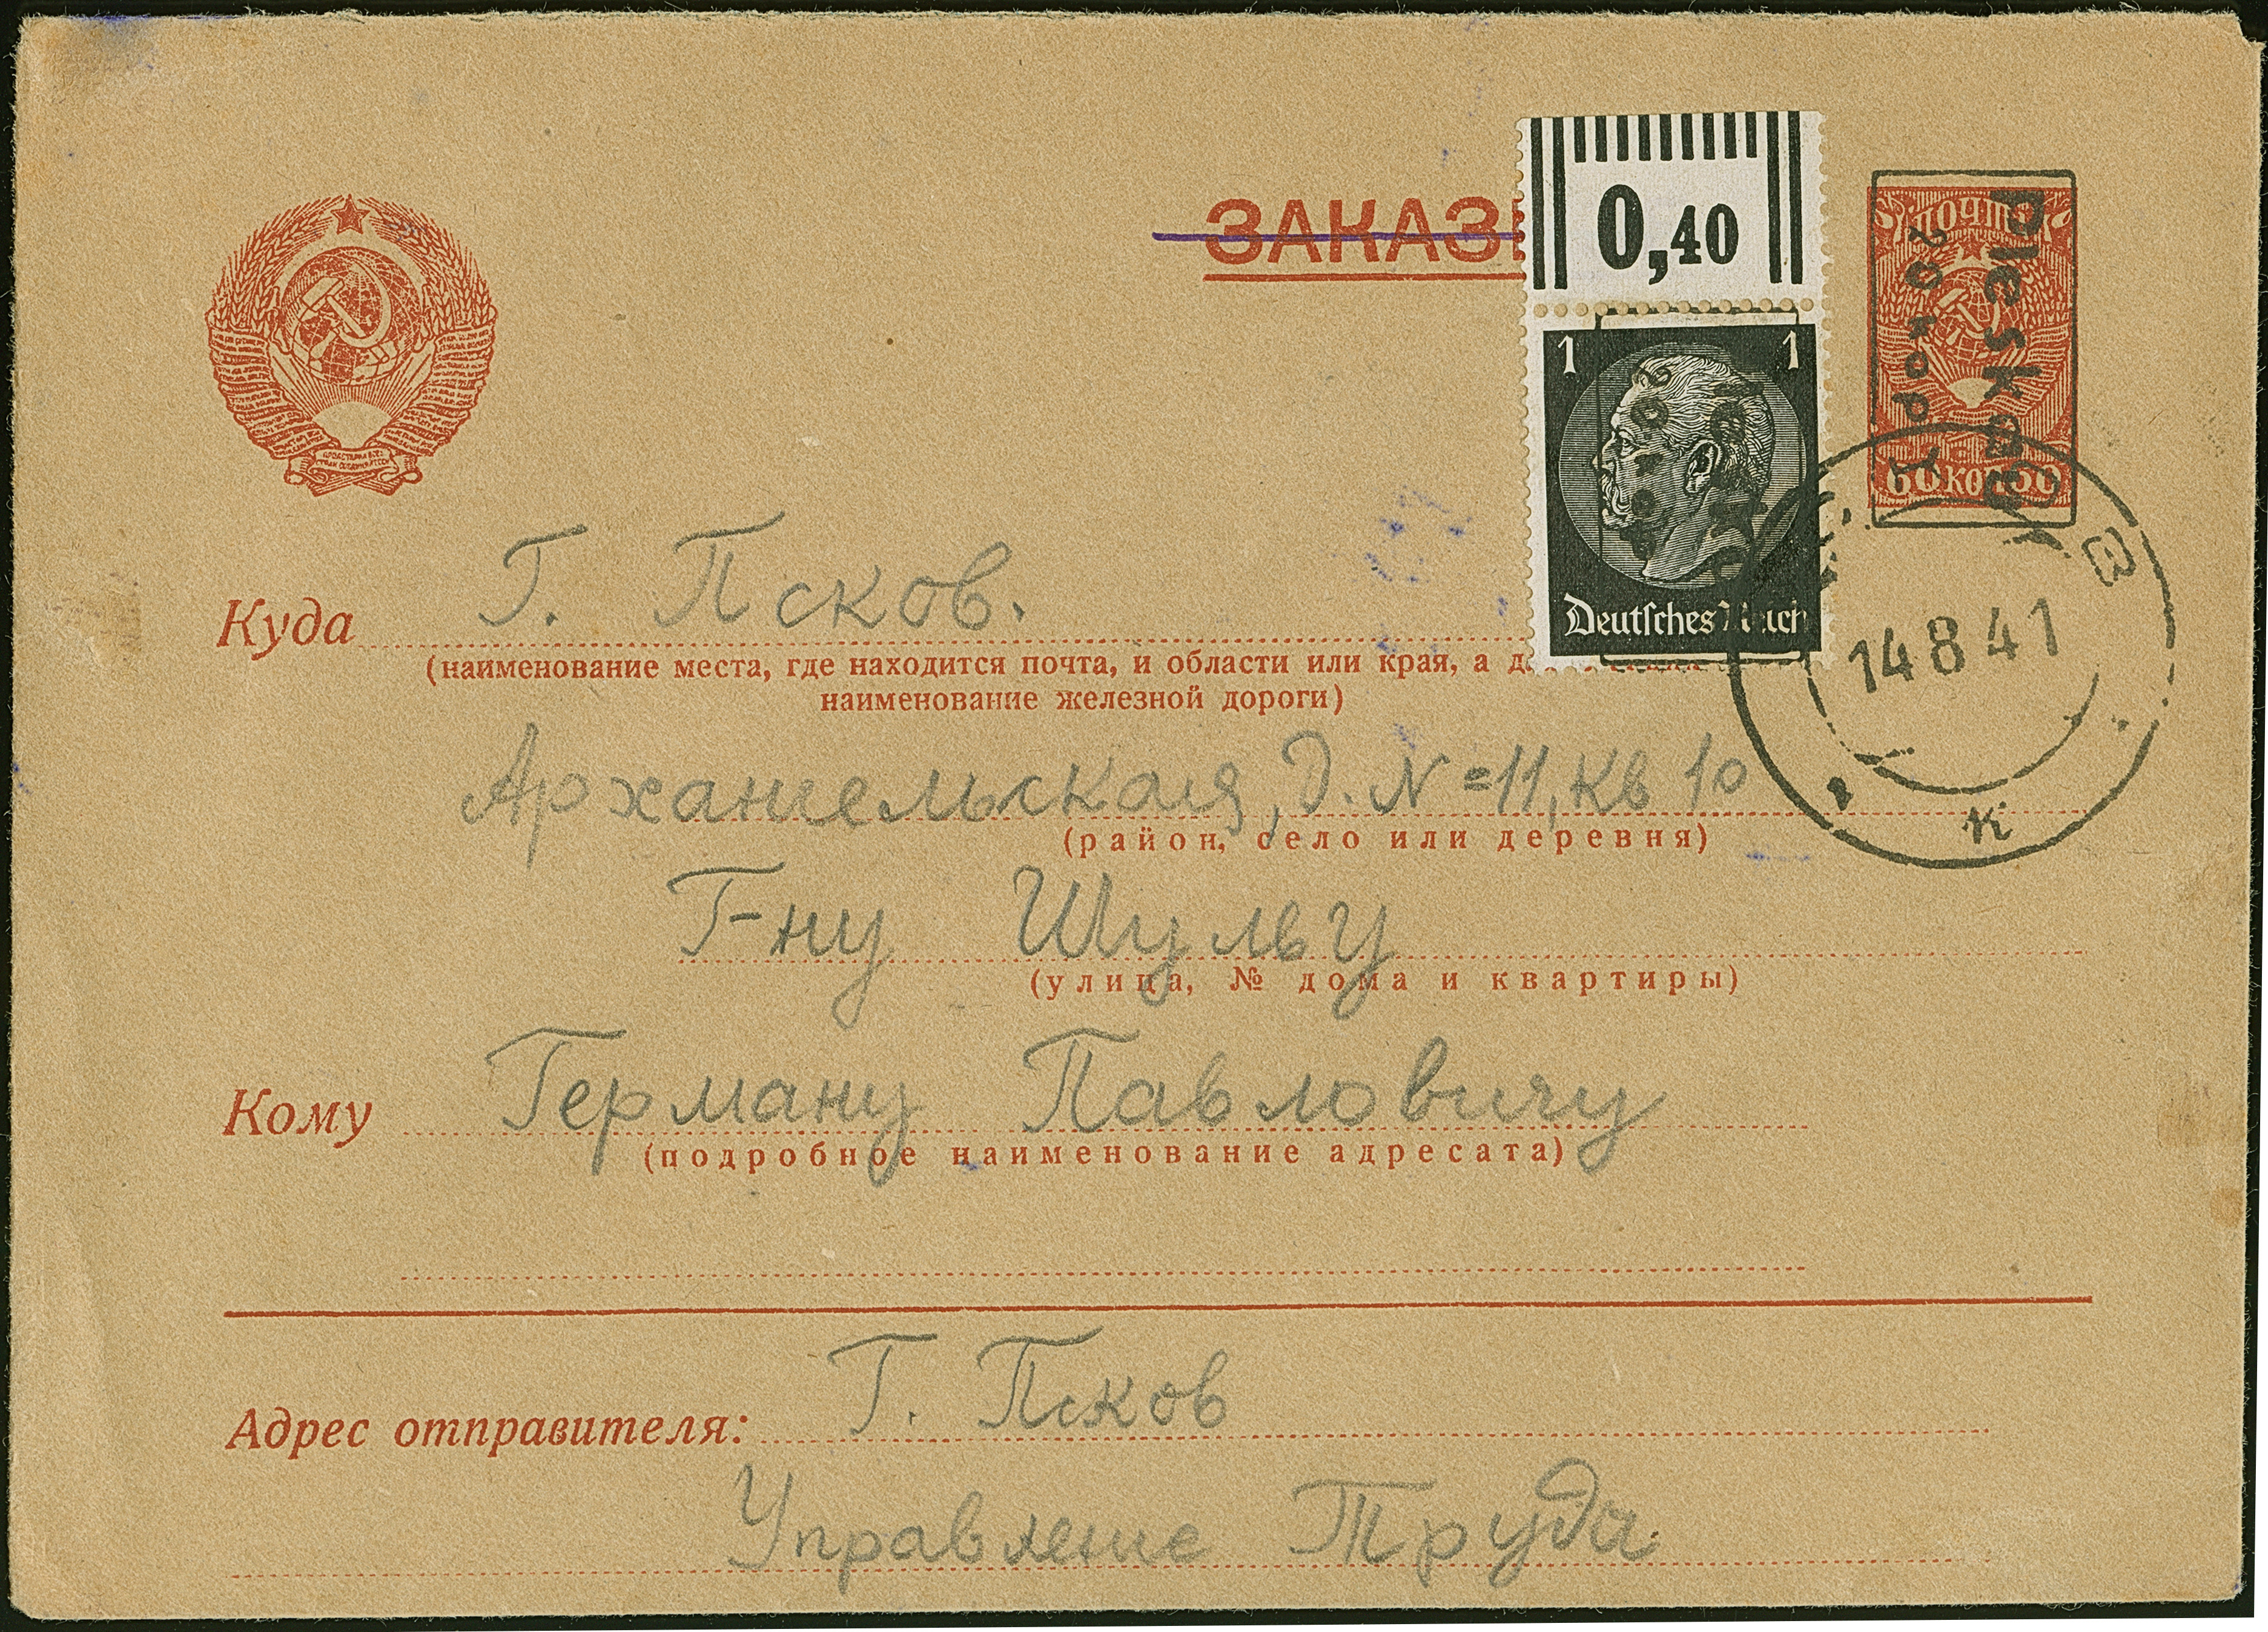 ЗАКАЗ
0,40
1 1
Deutsches Reich
ПОЧТА
Pleskau
20 коп
60 коп 60
14 8 41
Куда Г. Псков.
(наименование места, где находится почта, и области или края, а для
наименование железной дороги)
Архангельская, д. N=11, кв 10
(район, село или деревня)
Г-ну Шульу
(улица, № дома и квартиры)
Кому Герману Павловичу
(подробное наименование адресата)
Адрес отправителя: Г. Псков
Управление Труда